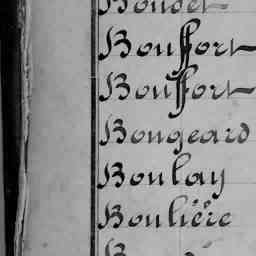 Boudet
Bouffort
Bouffort
Bougeard
Boulay
Boulière